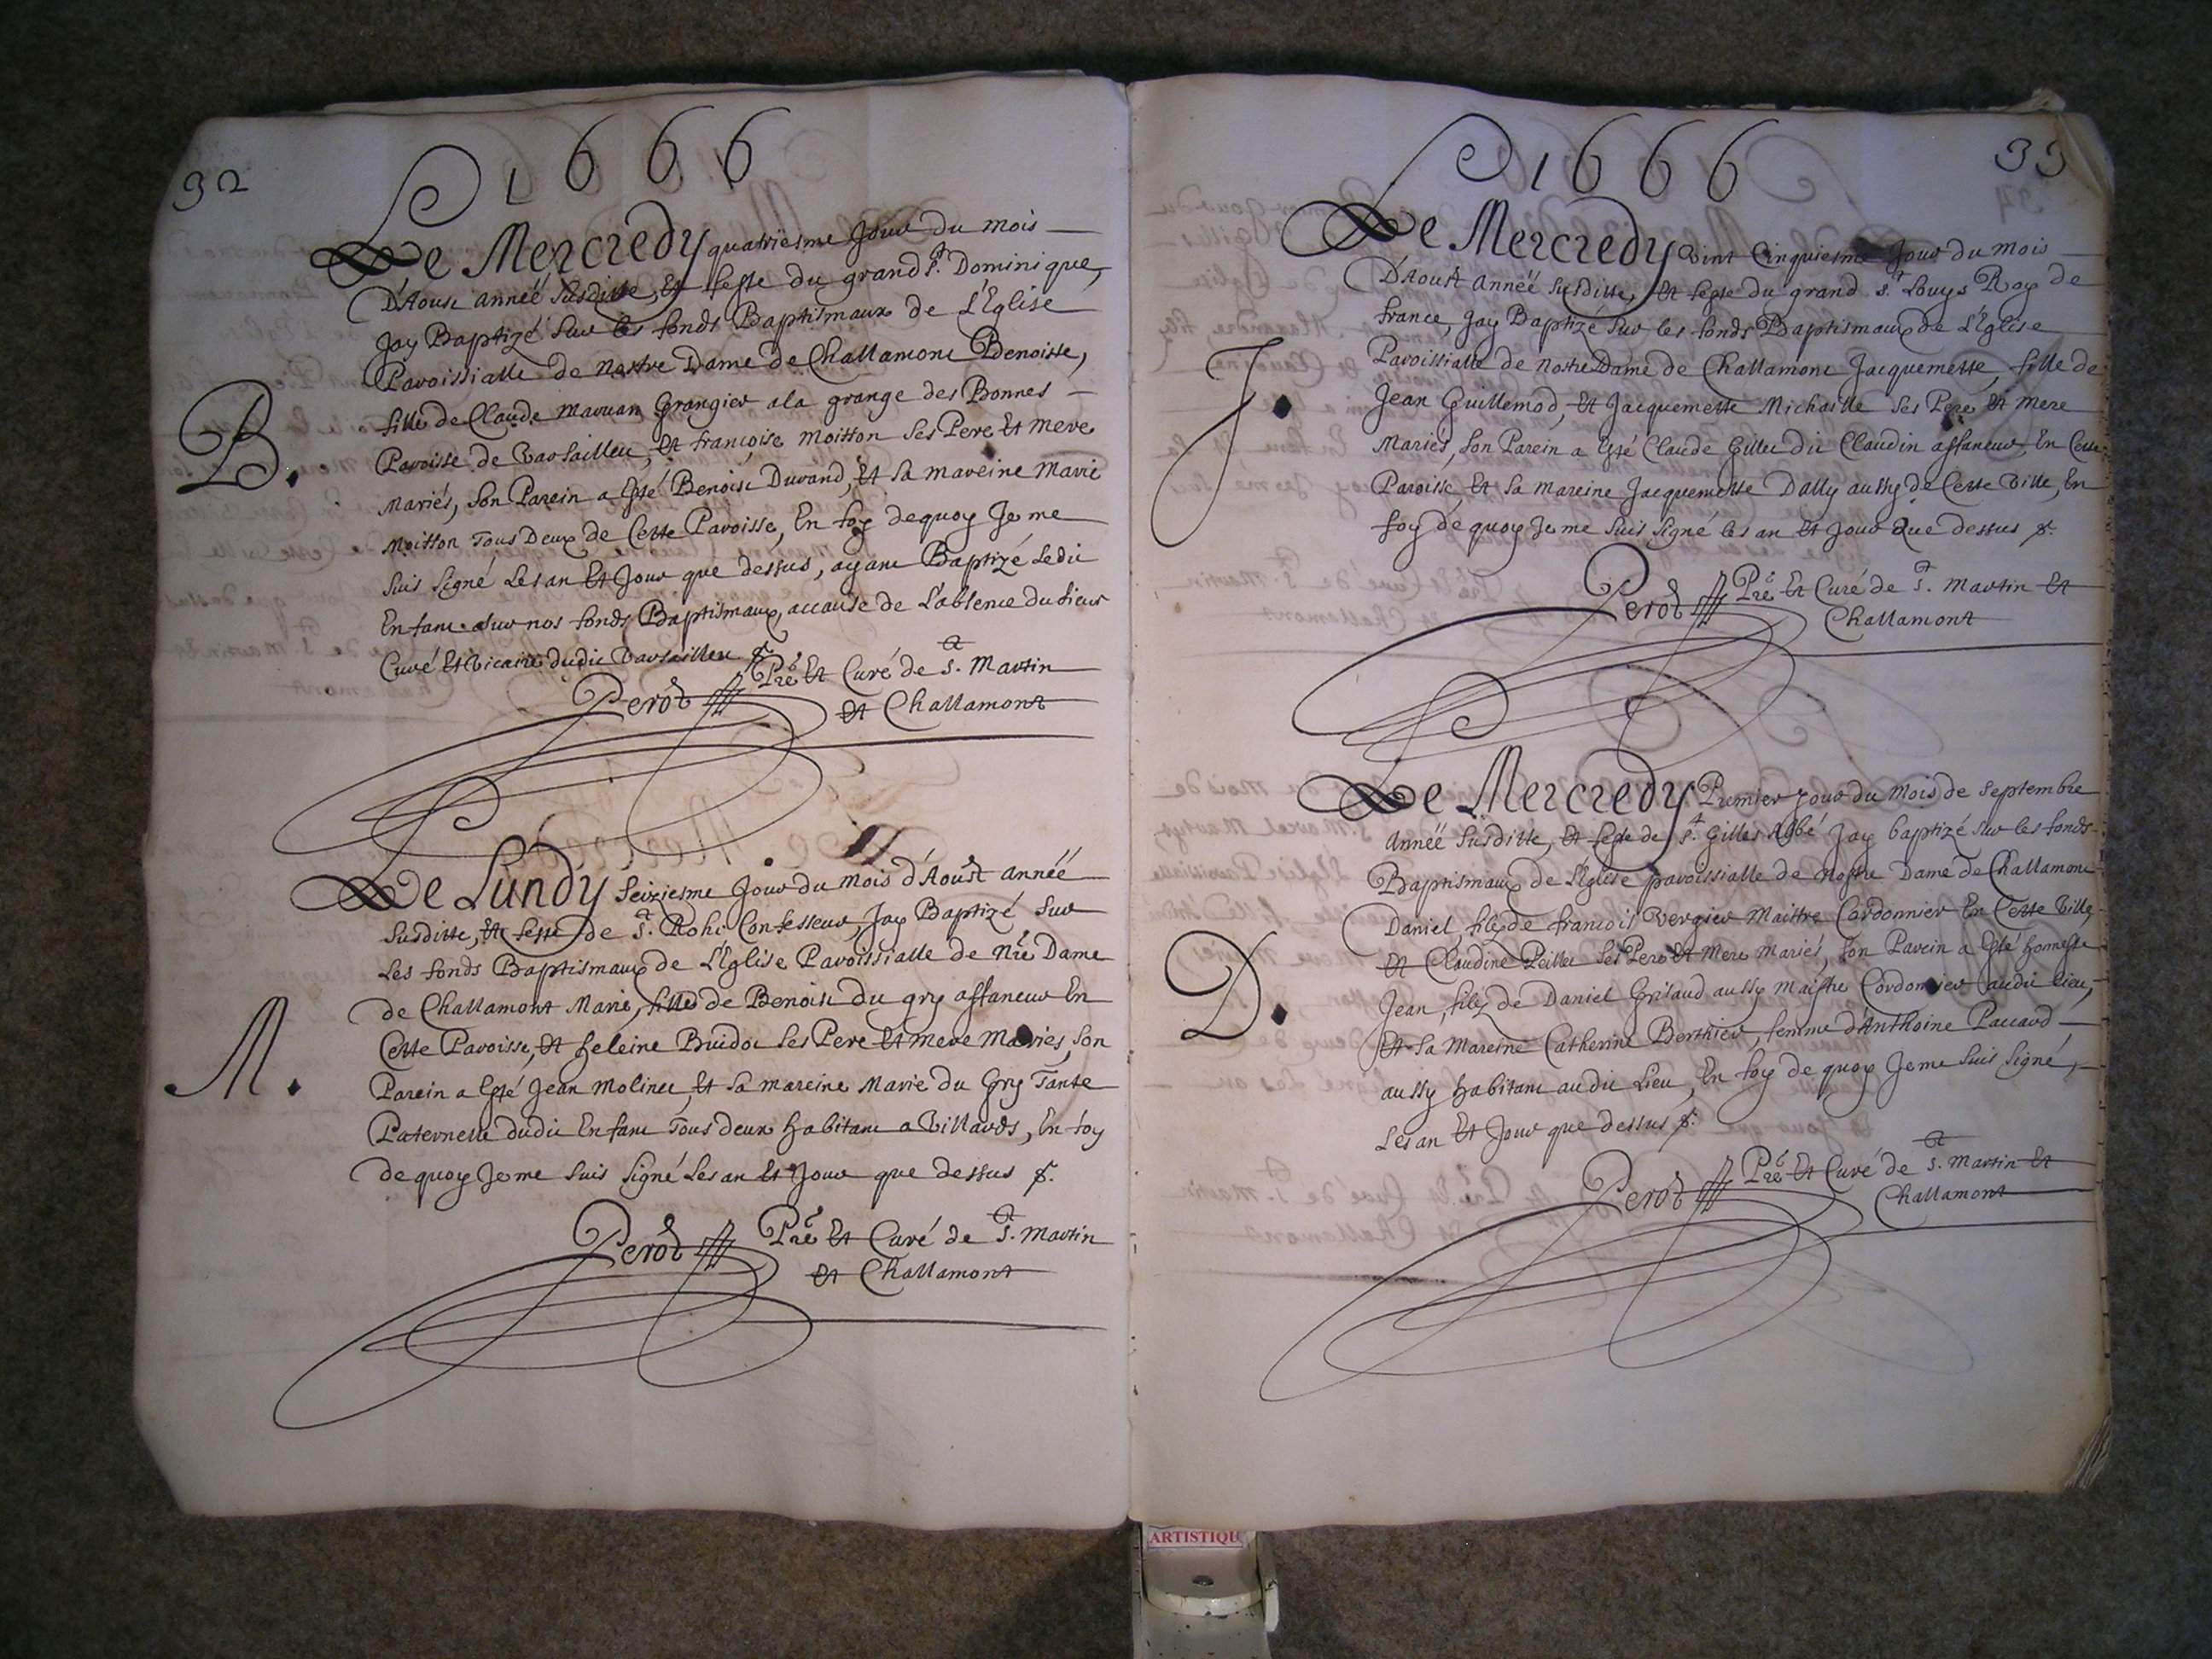 92
1666
Le Mercredy quatriesme Jour du mois
D'Aoust année susditte, Et feste du grand St. Dominique,
Jay Baptizé sur les fonds Baptismaux de L'Eglise
Paroissialle de Nostre Dame de Challamont Benoiste,
fille de Claude Granger a la grange des Bonnes
Paroisse de Varsailleu, Et françoise Moisson ses Pere Et mere
Mariés, son Parein a Esté Benoist Durand, Et sa mareine Marie
Moisson Tous Deux de Cette Paroisse, En foy dequoy Je me
suis signé Les an Et Jour que dessus, ayant Baptizé Ledit
Enfant sur nos fonds Baptismaux, accause de L'absence du sieur
Curé Et Vicaire dudit Varsailleu
B.
Perod Pre Et Curé de St. Martin
Et Challamont
Le Lundy seiziesme Jour du Mois d'Aoust année
susditte, Et feste de St. Roht Confesseur, Jay Baptizé sur
Les fonds Baptismaux de L'Eglise Paroissialle de Nre Dame
de Challamont Marie, fille de Benoist du gry affaneur En
Cette Paroisse, Et heleine Buidot ses Pere Et mere Mariés, son
Parein a Esté Jean Molinet, Et sa mareine Marie du Gry Tante
Paternelle dudit Enfant Tous deux habitant a Villards, En foy
de quoy Je me suis signé Les an Et Jour que dessus
M.
Perod Pre Et Curé de St. Martin
Et Challamont
93
1666
Le Mercredy vint Cinquiesme Jour du mois
D'Aoust année susditte, Et feste du grand St. Louys Roy de
france, Jay Baptizé sur les fonds Baptismaux de L'Eglise
Paroissialle de Nostre Dame de Challamont Jacquemette, fille de
Jean Guillemod, Et Jacquemette Michaille ses Pere Et mere
Mariés, son Parein a Esté Claude Gillet dit Claudin affaneur En Cette
Paroisse, Et sa mareine Jacquemette Dally aussy de Cette Ville, En
foy de quoy Je me suis signé les an Et Jour que dessus
J.
Perod Pre Et Curé de St. Martin Et
Challamont
Le Mercredy Premier jour du mois de septembre
année susditte, Et feste de St. Gilles Abbé Jay baptizé sur les fonds
Baptismaux de L'Eglise paroissialle de Nostre Dame de Challamont
Daniel, filz de francois Vergier Maistre Cordonnier En Cette Ville
Et Claudine Peillet ses Pere Et Mere Mariés, son Parein a Esté honneste
Jean, filz de Daniel Grisaud aussy Maistre Cordonier audit Lieu,
Et sa Mareine Catherine Berthier, femme d'Anthoine Paccard
aussy habitant audit Lieu, En foy de quoy Je me suis signé,
Les an Et Jour que dessus
D.
Perod Pre Et Curé de St. Martin Et
Challamont
ARTISTIQU